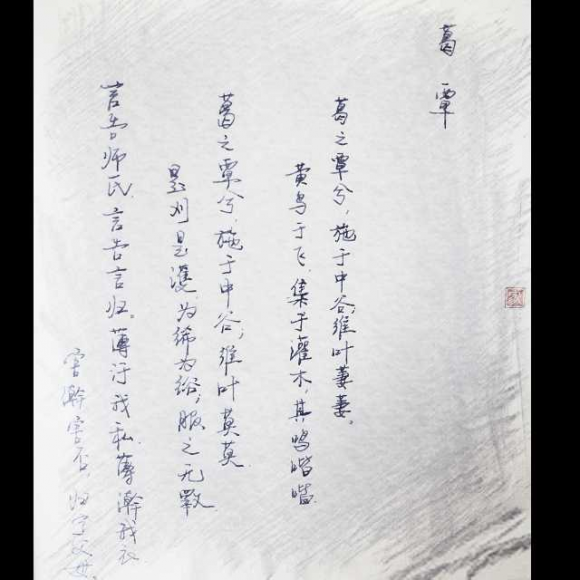 葛覃
葛之覃兮,施于中谷,维叶萋萋。
黄鸟于飞,集于灌木,其鸣喈喈。
葛之覃兮,施于中谷,维叶莫莫
是刈是濩,为绤为绤,服之无斁
言告师氏,言告言归。薄汙我私,薄澣我衣
害澣害否,归宁父母